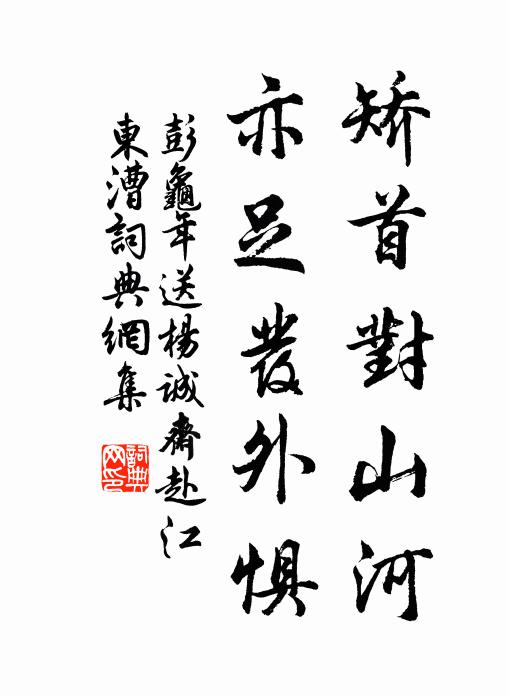 矯首對山河
亦足發外懼
彭龜年送楊誠齋赴江
東漕詞典網集
詞典
网印